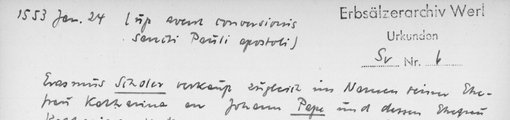 1553 Jan. 24 (up avent conversionis
sancti Pauli apostoli)
Erbsälzerarchiv Werl
Urkunden
Sv Nr. 6
Erasmus Scholer verkauft zugleich im Namen seiner Ehe-
frau Katharina an Johann Pape und dessen Ehefrau